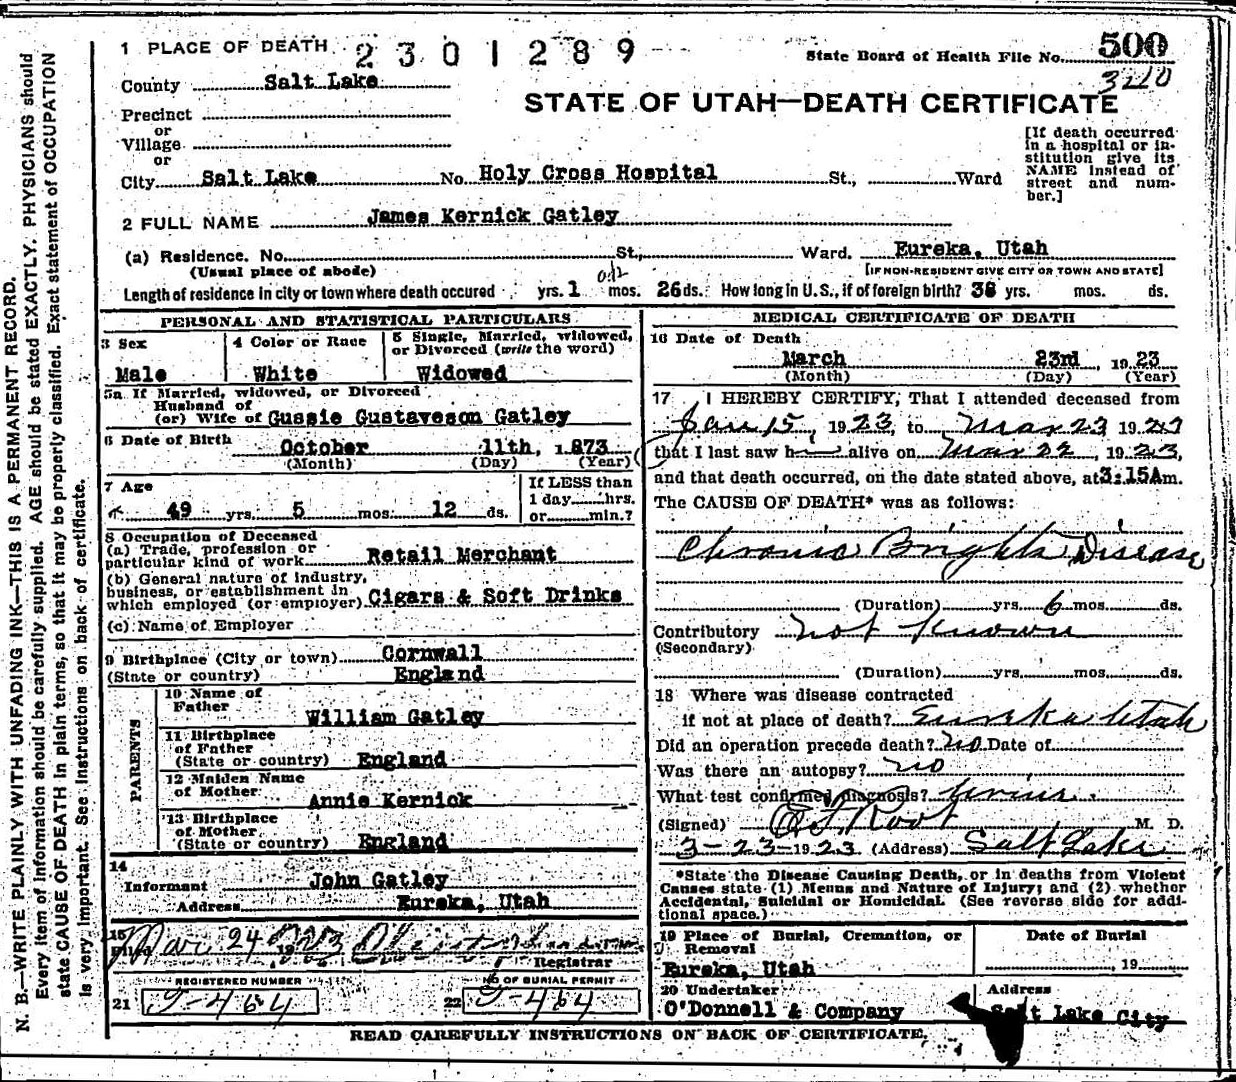 1 PLACE OF DEATH
2301289
State Board of Health File No. 500
3210
County Salt Lake
STATE OF UTAH—DEATH CERTIFICATE
Precinct
or
Village
or
City Salt Lake No. Holy Cross Hospital St., Ward
[If death occurred in a hospital or in-
stitution give its
NAME instead of
street and num-
ber.]
2 FULL NAME James Kernick Gatley
(a) Residence. No. St., Ward. Eureka, Utah
(Usual place of abode) [IF NON-RESIDENT GIVE CITY OR TOWN AND STATE]
Length of residence in city or town where death occured yrs. 1 mos. 26 ds. How long in U.S., if of foreign birth? 38 yrs. mos. ds.
PERSONAL AND STATISTICAL PARTICULARS
3 Sex
Male
4 Color or Race
White
5 Single, Married, widowed,
or Divorced (write the word)
Widowed
5a If Married, widowed, or Divorced
Husband of
(or) Wife of Gussie Gustaveson Gatley
6 Date of Birth
October 11th, 1873
(Month) (Day) (Year)
7 Age
49 yrs. 5 mos. 12 ds.
If LESS than
1 day hrs.
or min.?
8 Occupation of Deceased
(a) Trade, profession or
particular kind of work Retail Merchant
(b) General nature of Industry,
business, or establishment in
which employed (or employer) Cigars & Soft Drinks
(c) Name of Employer
9 Birthplace (City or town) Cornwall
(State or country) England
PARENTS
10 Name of
Father
William Gatley
11 Birthplace
of Father
(State or country) England
12 Maiden Name
of Mother
Annie Kernick
13 Birthplace
of Mother
(State or country) England
14
Informant John Gatley
Address Eureka, Utah
15
Filed Mar 24 1923
Registrar
REGISTERED NUMBER
21 J-464
No OF BURIAL PERMIT
22 J-464
MEDICAL CERTIFICATE OF DEATH
16 Date of Death
March 23rd, 1923
(Month) (Day) (Year)
17 I HEREBY CERTIFY, That I attended deceased from
Jan 15, 1923, to Mar 23 1923
that I last saw h alive on Mar 22, 1923,
and that death occurred, on the date stated above, at 3:15Am.
The CAUSE OF DEATH* was as follows:
Chronic Brights Disease
(Duration) yrs. 6 mos. ds.
Contributory not known
(Secondary)
(Duration) yrs. mos. ds.
18 Where was disease contracted
if not at place of death? Eureka Utah
Did an operation precede death? no Date of
Was there an autopsy? no
What test confirmed diagnosis? Urine.
(Signed) Root M. D.
3-23-1923 (Address) Salt Lake
*State the Disease Causing Death, or in deaths from Violent
Causes state (1) Means and Nature of Injury; and (2) whether
Accidental, Suicidal or Homicidal. (See reverse side for addi-
tional space.)
19 Place of Burial, Cremation, or
Removal
Eureka, Utah
Date of Burial
, 19
20 Undertaker
O'Donnell & Company
Address
Salt Lake City
READ CAREFULLY INSTRUCTIONS ON BACK OF CERTIFICATE.
N. B.—WRITE PLAINLY WITH UNFADING INK—THIS IS A PERMANENT RECORD.
Every item of information should be carefully supplied. AGE should be stated EXACTLY. PHYSICIANS should
state CAUSE OF DEATH in plain terms, so that it may be properly classified. Exact statement of OCCUPATION
is very important. See instructions on back of certificate.